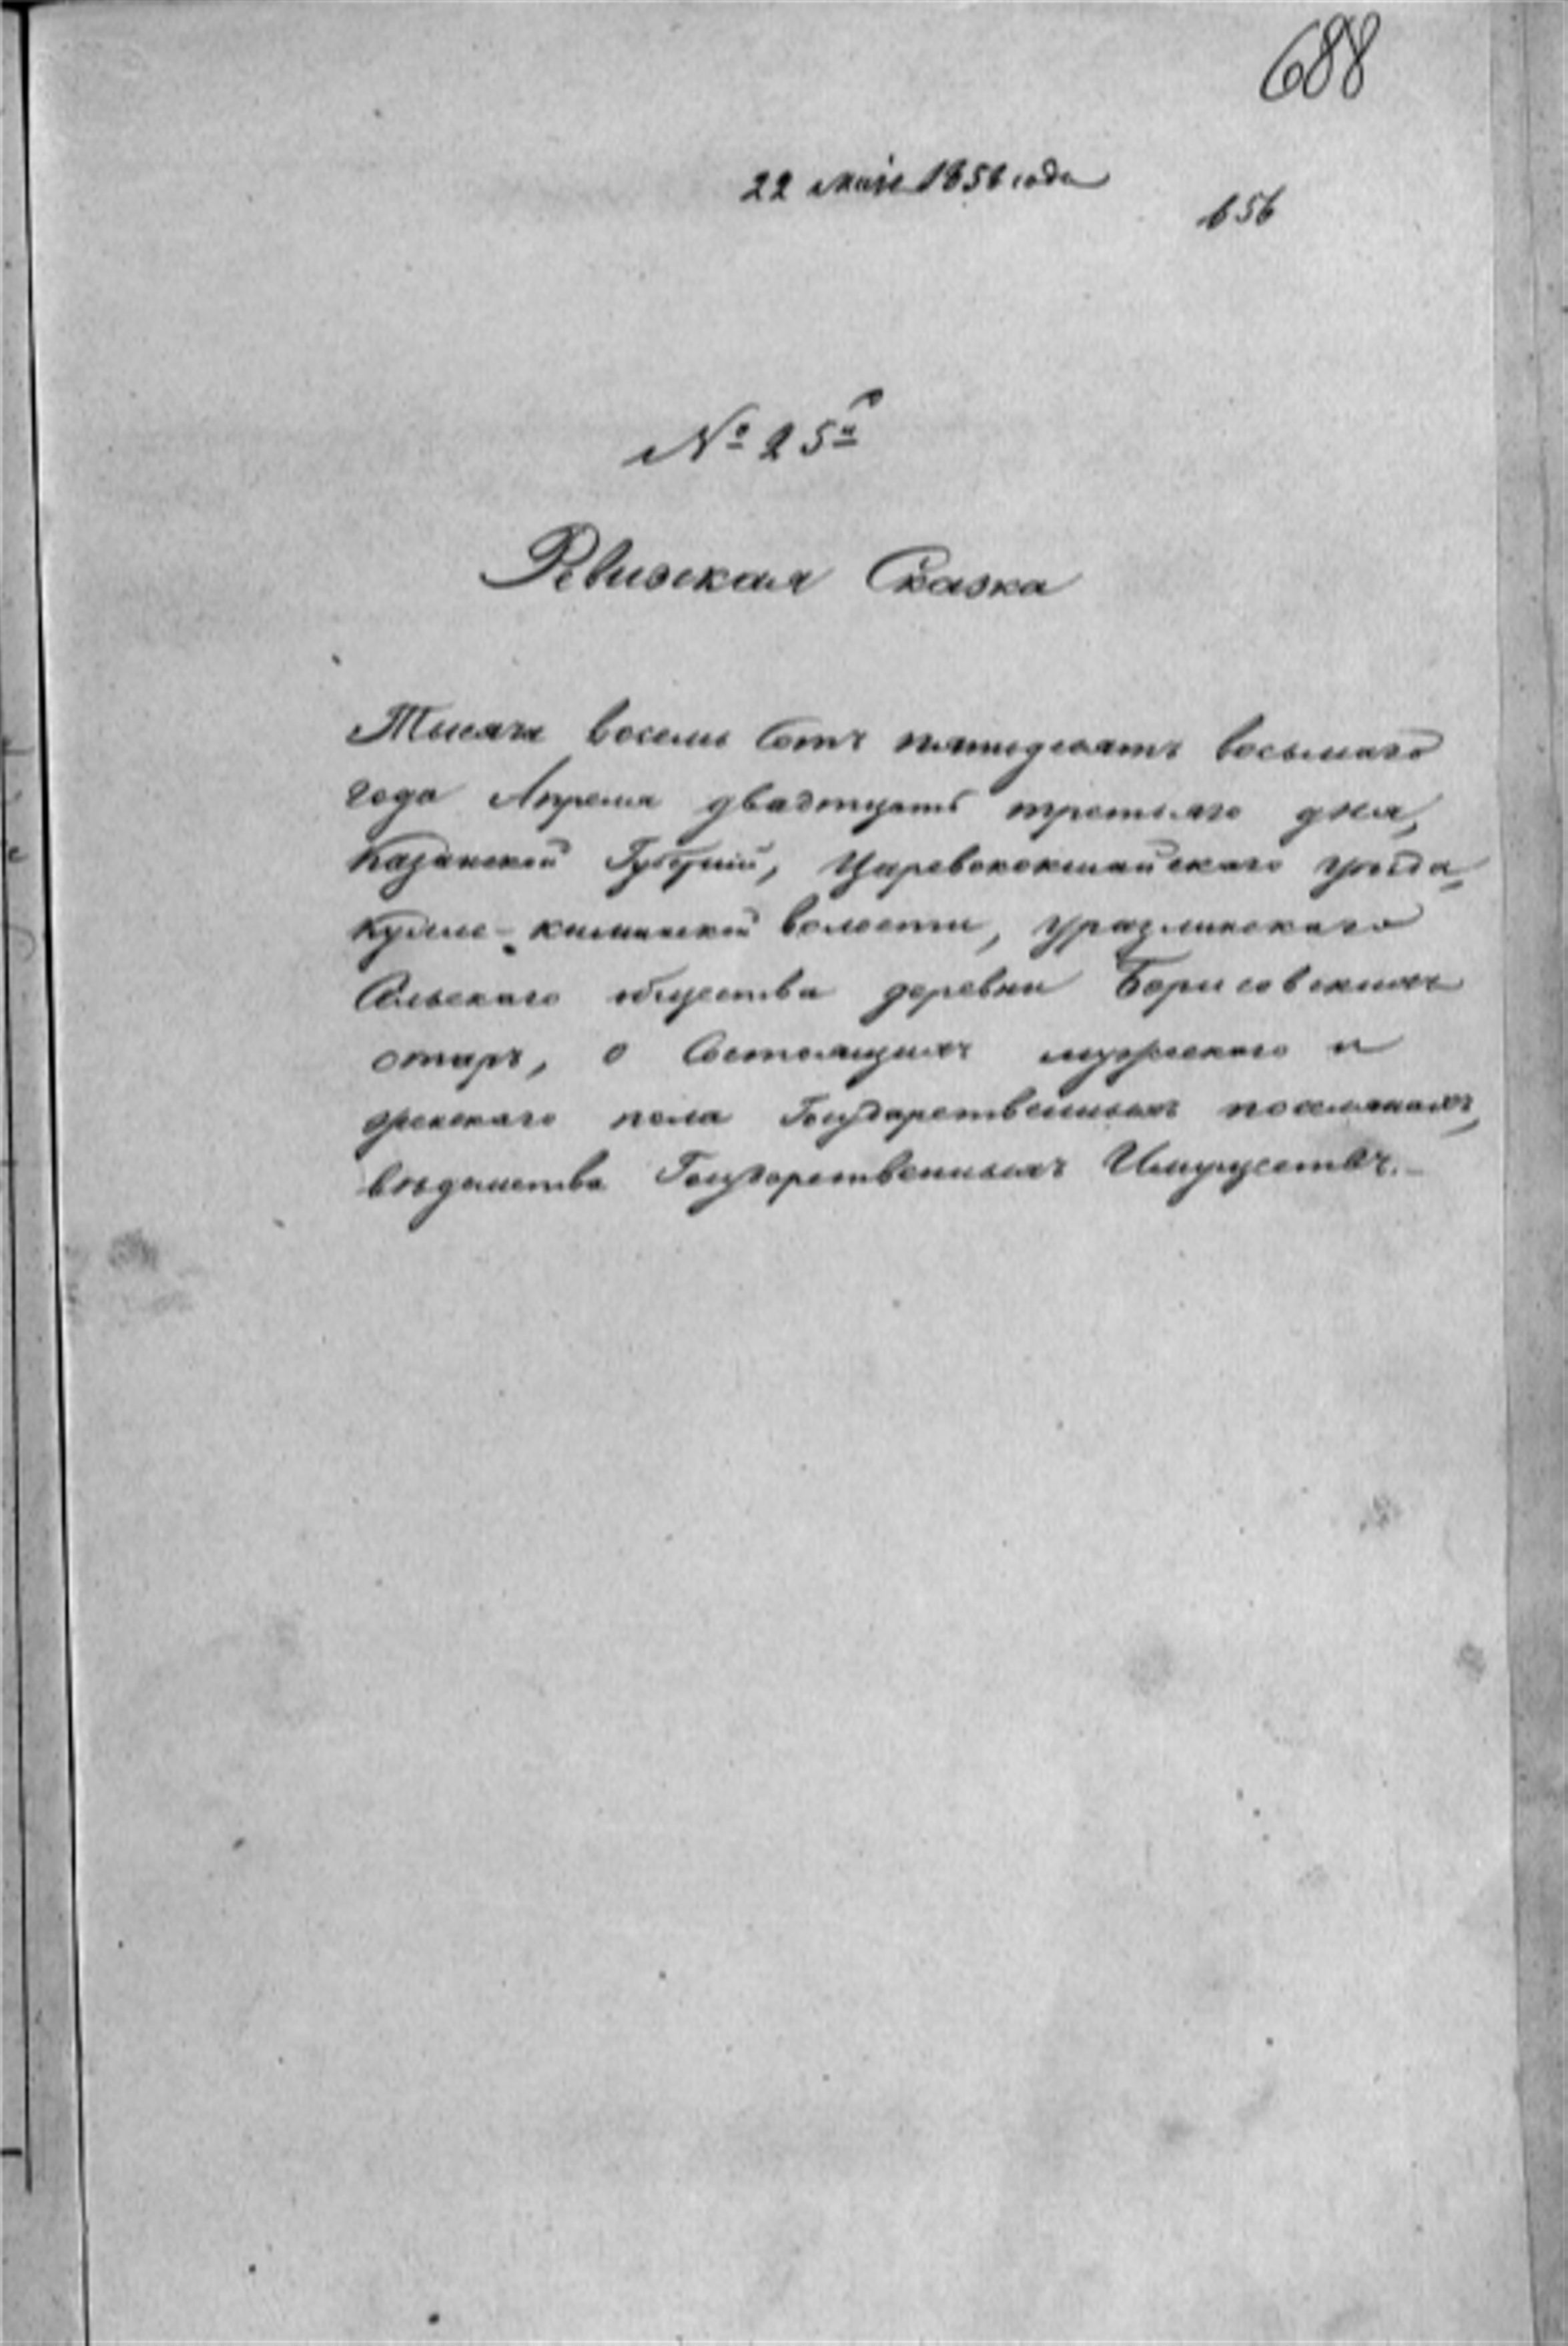 688
22 мая 1858 года
656
№ 25й
Ревизская Сказка
Тысяча восемь Сотъ пятидесятъ восьмаго
года Апреля двадтцать третьяго дня,
Казанской Губерніи, Царевококшайскаго уѣзда,
Кулле-киминской волости, Уразлинскаго
Сельскаго общества деревни Борисовскихъ
отаръ, о Состоящихъ мужескаго и
женскаго пола Государственныхъ поселянахъ,
вѣдомства Государственныхъ Имуществъ.